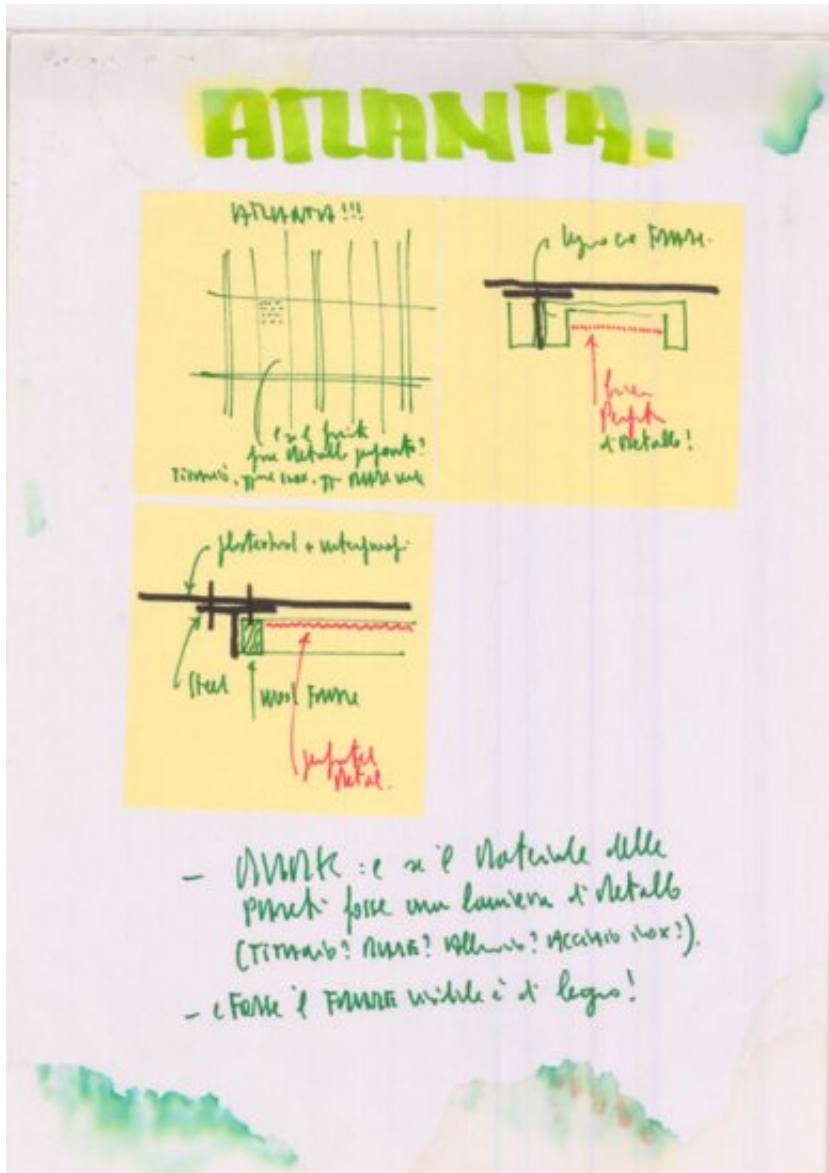 ATLANTA.
ATLANTA!!!
legno FRAME.
e se
metallo perforato?
TITANIO,
di metallo!
plasterboard + waterproof.
Steel
wood FRAME
perforated
metal.
- MARK : e se il materiale delle
pareti fosse una lamiera di metallo
(TITANIO? RAME? Alluminio? Acciaio inox?).
- e FORSE il FRAME visibile è di legno!